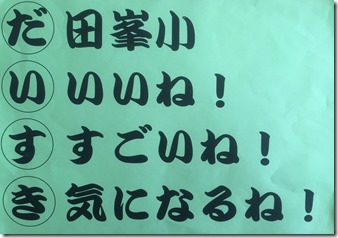 だ 田峯小
い いいね!
す すごいね!
き 気になるね!